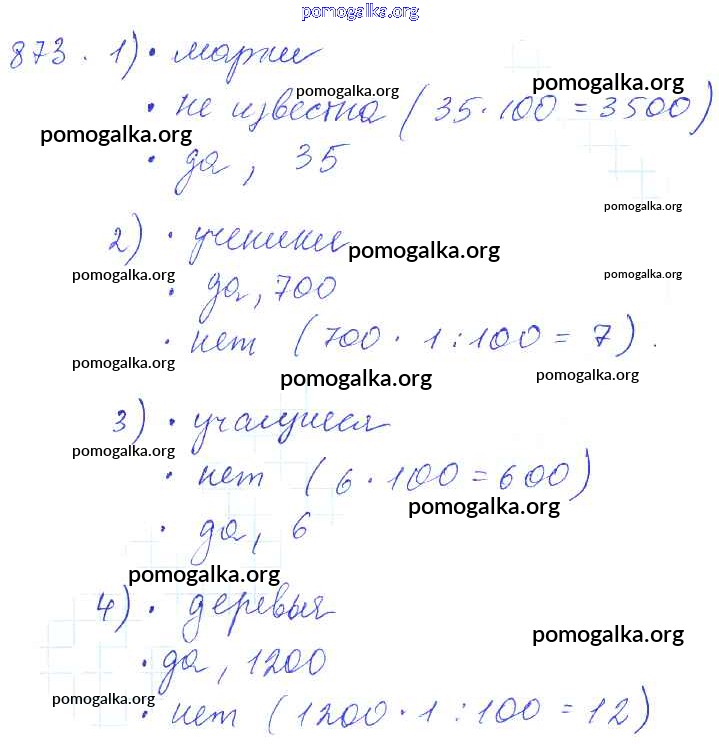 pomogalka.org
873. 1) • марки
pomogalka.org pomogalka.org
• не известна (35·100=3500)
pomogalka.org
• да, 35
pomogalka.org
2) • ученики
pomogalka.org
pomogalka.org pomogalka.org
• да, 700
• нет (700 · 1:100 = 7).
pomogalka.org pomogalka.org pomogalka.org
3) • учащиеся
pomogalka.org
• нет (6·100=600)
pomogalka.org
• да, 6
pomogalka.org
4) • деревья
pomogalka.org
• да, 1200
pomogalka.org
• нет (1200·1:100=12)